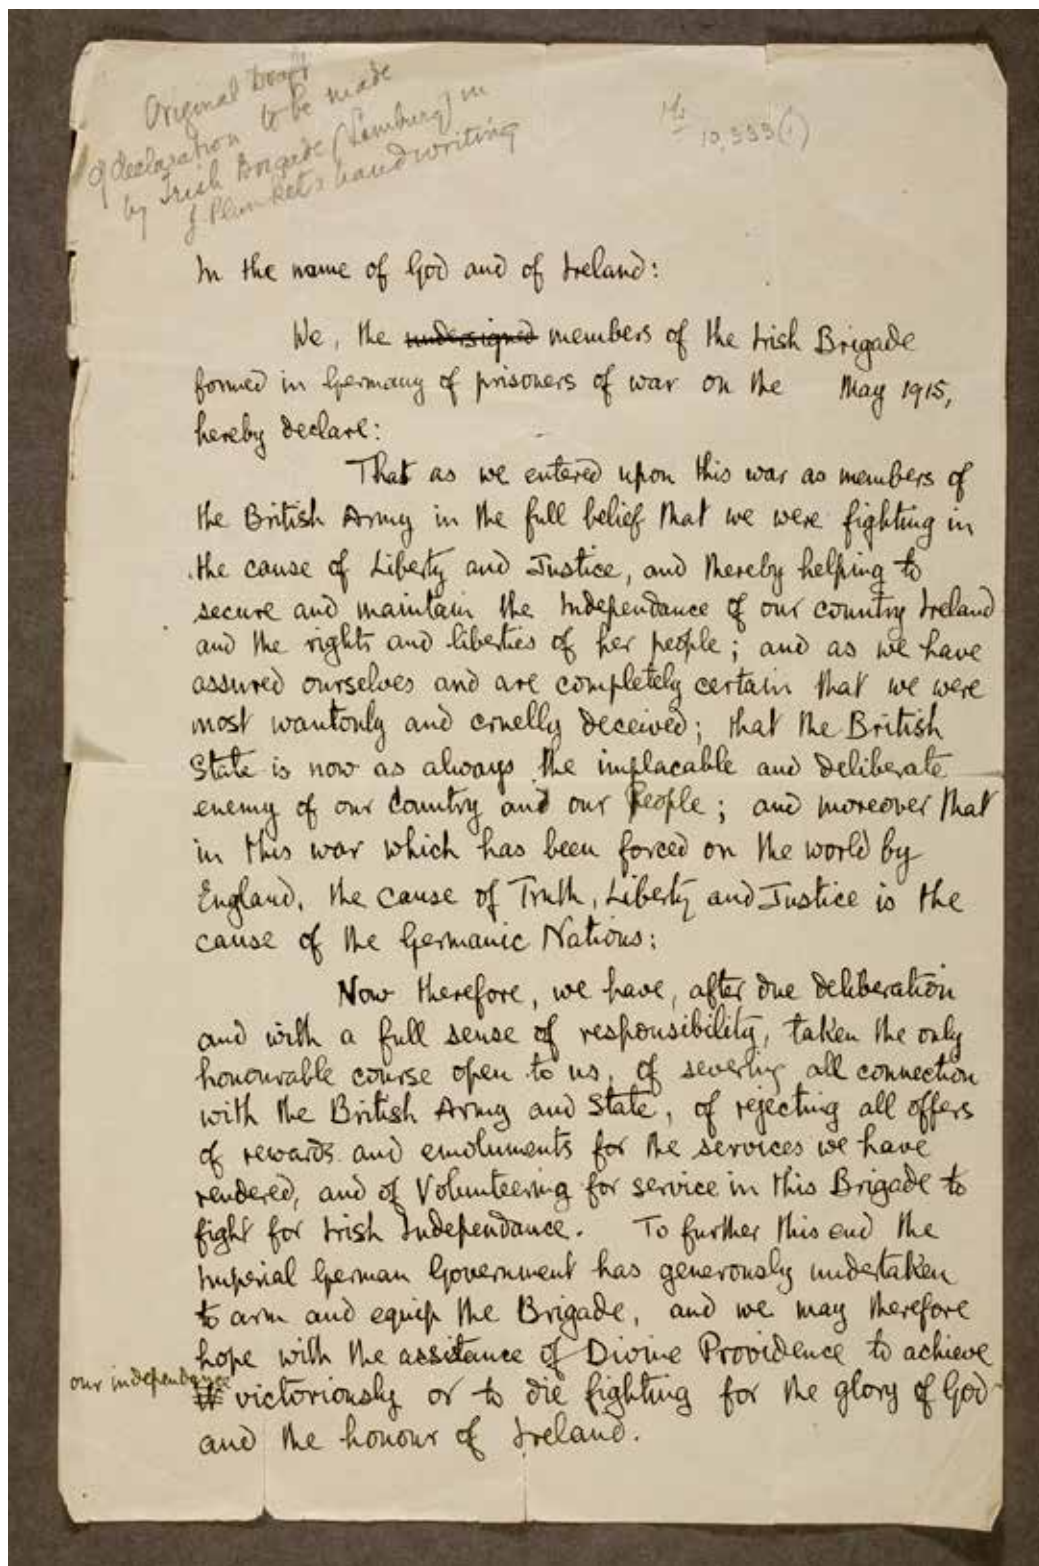 Original Draft
of declaration to be made
by Irish Brigade (Limburg) in
J Plunket's handwriting
Ms
10,999(1)
In the name of God and of Ireland:
We, the undersigned members of the Irish Brigade
formed in Germany of prisoners of war on the May 1915,
hereby declare:
That as we entered upon this war as members of
the British Army in the full belief that we were fighting in
the cause of Liberty and Justice, and thereby helping to
secure and maintain the Independance of our country Ireland
and the rights and liberties of her people; and as we have
assured ourselves and are completely certain that we were
most wantonly and cruelly deceived; that the British
State is now as always the implacable and deliberate
enemy of our Country and our People; and moreover that
in this war which has been forced on the world by
England, the cause of Truth, Liberty and Justice is the
cause of the Germanic Nations:
Now therefore, we have, after due deliberation
and with a full sense of responsibility, taken the only
honourable course open to us, of severing all connection
with the British Army and State, of rejecting all offers
of rewards and emoluments for the services we have
rendered, and of Volunteering for service in this Brigade to
fight for Irish Independance. To further this end the
Imperial German Government has generously undertaken
to arm and equip the Brigade, and we may therefore
hope with the assistance of Divine Providence to achieve
our independance
it victoriously or to die fighting for the glory of God
and the honour of Ireland.